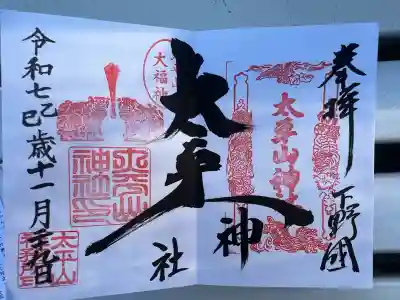 奉拝
下野國
太平山神社
太平
神
社
大福神
太平山
神社印
令和七乙巳歳十一月
太平山